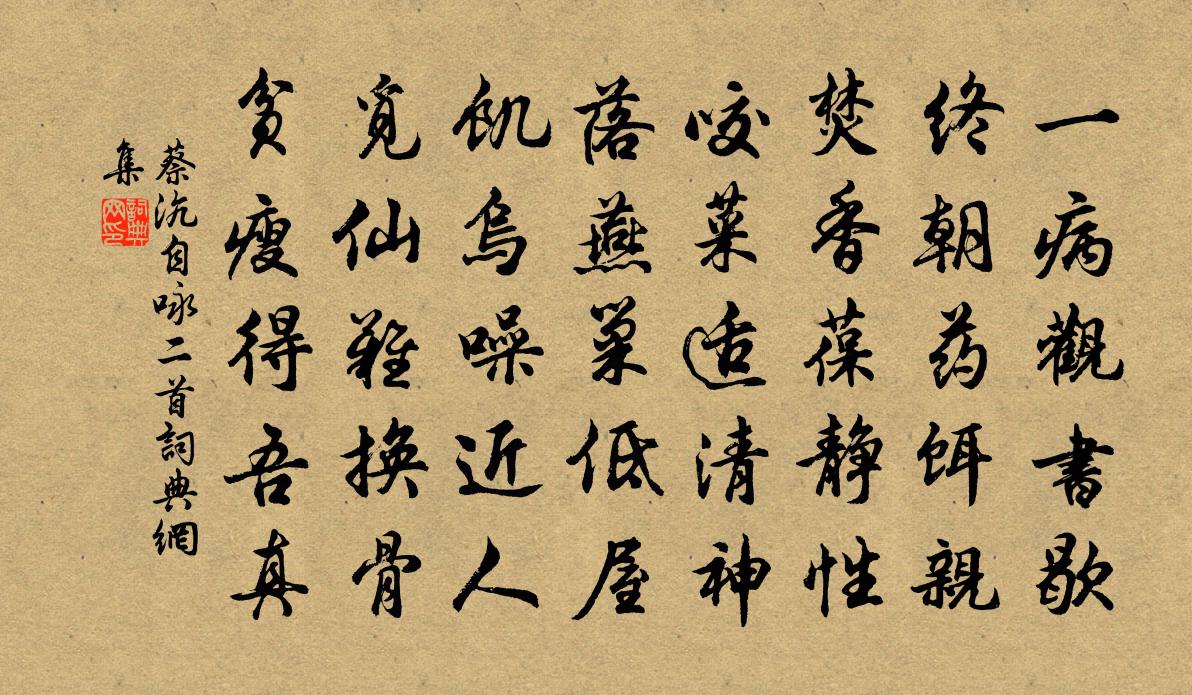 一病觀書歇
終朝药餌親
焚香葆静性
咬菜适清神
落燕巢低屋
飢烏噪近人
覓仙難換骨
貧瘦得吾真
蔡沆自咏二首詞典網
集
詞典網印